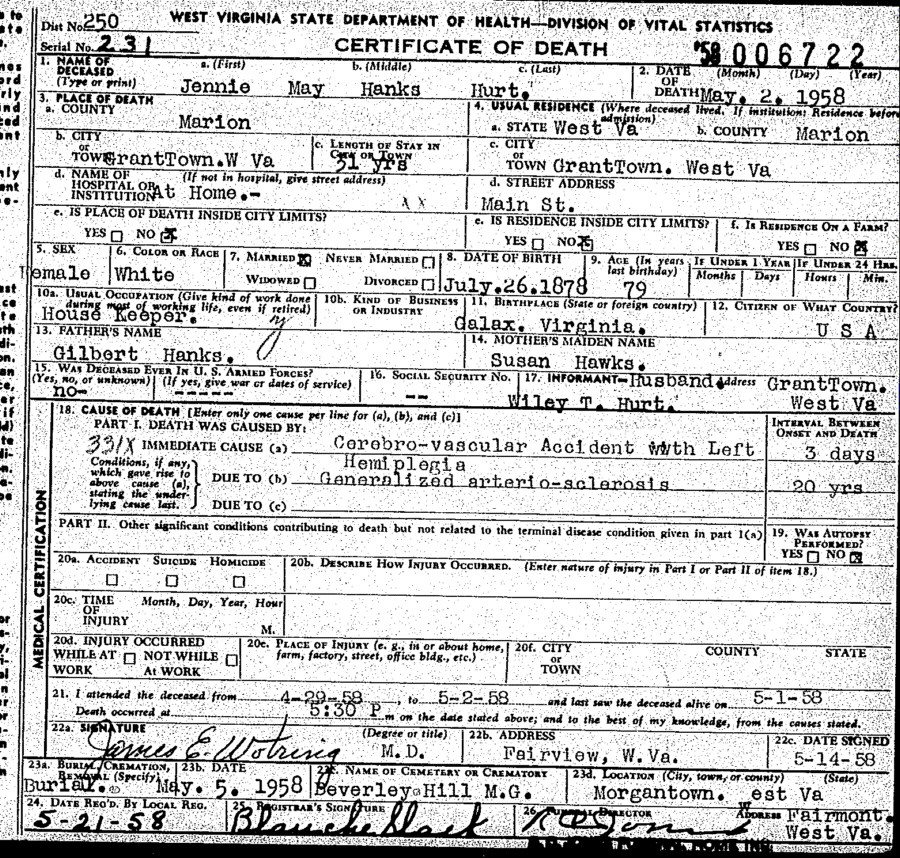 WEST VIRGINIA STATE DEPARTMENT OF HEALTH—DIVISION OF VITAL STATISTICS
Dist No. 250
Serial No. 231
CERTIFICATE OF DEATH
58 006722
1. NAME OF DECEASED (Type or print) a. (First) b. (Middle) c. (Last)
Jennie May Hanks Hurt.
2. DATE OF DEATH (Month) (Day) (Year)
May. 2. 1958
3. PLACE OF DEATH
a. COUNTY
Marion
4. USUAL RESIDENCE (Where deceased lived. If institution: Residence before admission)
a. STATE West Va b. COUNTY Marion
b. CITY or TOWN GrantTown.W Va
c. LENGTH OF STAY IN CITY OR TOWN 51 yrs
c. CITY or TOWN GrantTown. West Va
d. NAME OF HOSPITAL OR INSTITUTION (If not in hospital, give street address)
At Home.-
d. STREET ADDRESS
Main St.
e. IS PLACE OF DEATH INSIDE CITY LIMITS?
YES NO X
e. IS RESIDENCE INSIDE CITY LIMITS?
YES NO X
f. IS RESIDENCE ON A FARM?
YES NO X
5. SEX
Female
6. COLOR OR RACE
White
7. MARRIED X NEVER MARRIED
WIDOWED DIVORCED
8. DATE OF BIRTH
July.26.1878
9. AGE (In years last birthday)
79
IF UNDER 1 YEAR Months Days
IF UNDER 24 HRS. Hours Min.
10a. USUAL OCCUPATION (Give kind of work done during most of working life, even if retired)
House Keeper.
10b. KIND OF BUSINESS OR INDUSTRY
11. BIRTHPLACE (State or foreign country)
Galax. Virginia.
12. CITIZEN OF WHAT COUNTRY?
U S A
13. FATHER'S NAME
Gilbert Hanks.
14. MOTHER'S MAIDEN NAME
Susan Hawks.
15. WAS DECEASED EVER IN U. S. ARMED FORCES?
(Yes, no, or unknown) (If yes, give war or dates of service)
no- -----
16. SOCIAL SECURITY NO.
--
17. INFORMANT—Husband. Address GrantTown.
Wiley T. Hurt. West Va
MEDICAL CERTIFICATION
18. CAUSE OF DEATH [Enter only one cause per line for (a), (b), and (c)]
PART I. DEATH WAS CAUSED BY:
INTERVAL BETWEEN ONSET AND DEATH
331X IMMEDIATE CAUSE (a) Cerebro-vascular Accident with Left 3 days
Hemiplegia
Conditions, if any, which gave rise to above cause (a), stating the underlying cause last.
DUE TO (b) Generalized arterio-sclerosis 20 yrs
DUE TO (c)
PART II. Other significant conditions contributing to death but not related to the terminal disease condition given in part 1(a)
19. WAS AUTOPSY PERFORMED?
YES NO X
20a. ACCIDENT SUICIDE HOMICIDE
20b. DESCRIBE HOW INJURY OCCURRED. (Enter nature of injury in Part I or Part II of item 18.)
20c. TIME OF INJURY Month, Day, Year, Hour
M.
20d. INJURY OCCURRED
WHILE AT WORK NOT WHILE AT WORK
20e. PLACE OF INJURY (e. g., in or about home, farm, factory, street, office bldg., etc.)
20f. CITY or TOWN COUNTY STATE
21. I attended the deceased from 4-29-58, to 5-2-58 and last saw the deceased alive on 5-1-58
Death occurred at 5:30 P.m on the date stated above; and to the best of my knowledge, from the causes stated.
22a. SIGNATURE (Degree or title)
James E. Wotring M.D.
22b. ADDRESS
Fairview, W.Va.
22c. DATE SIGNED
5-14-58
23a. BURIAL, CREMATION, REMOVAL (Specify)
Burial.
23b. DATE
May. 5. 1958
23c. NAME OF CEMETERY OR CREMATORY
Beverley Hill M.G.
23d. LOCATION (City, town, or county) (State)
Morgantown. West Va
24. DATE REC'D. BY LOCAL REG.
5-21-58
25. REGISTRAR'S SIGNATURE
Blanche Slack
26. FUNERAL DIRECTOR ADDRESS
Fairmont.
West Va.